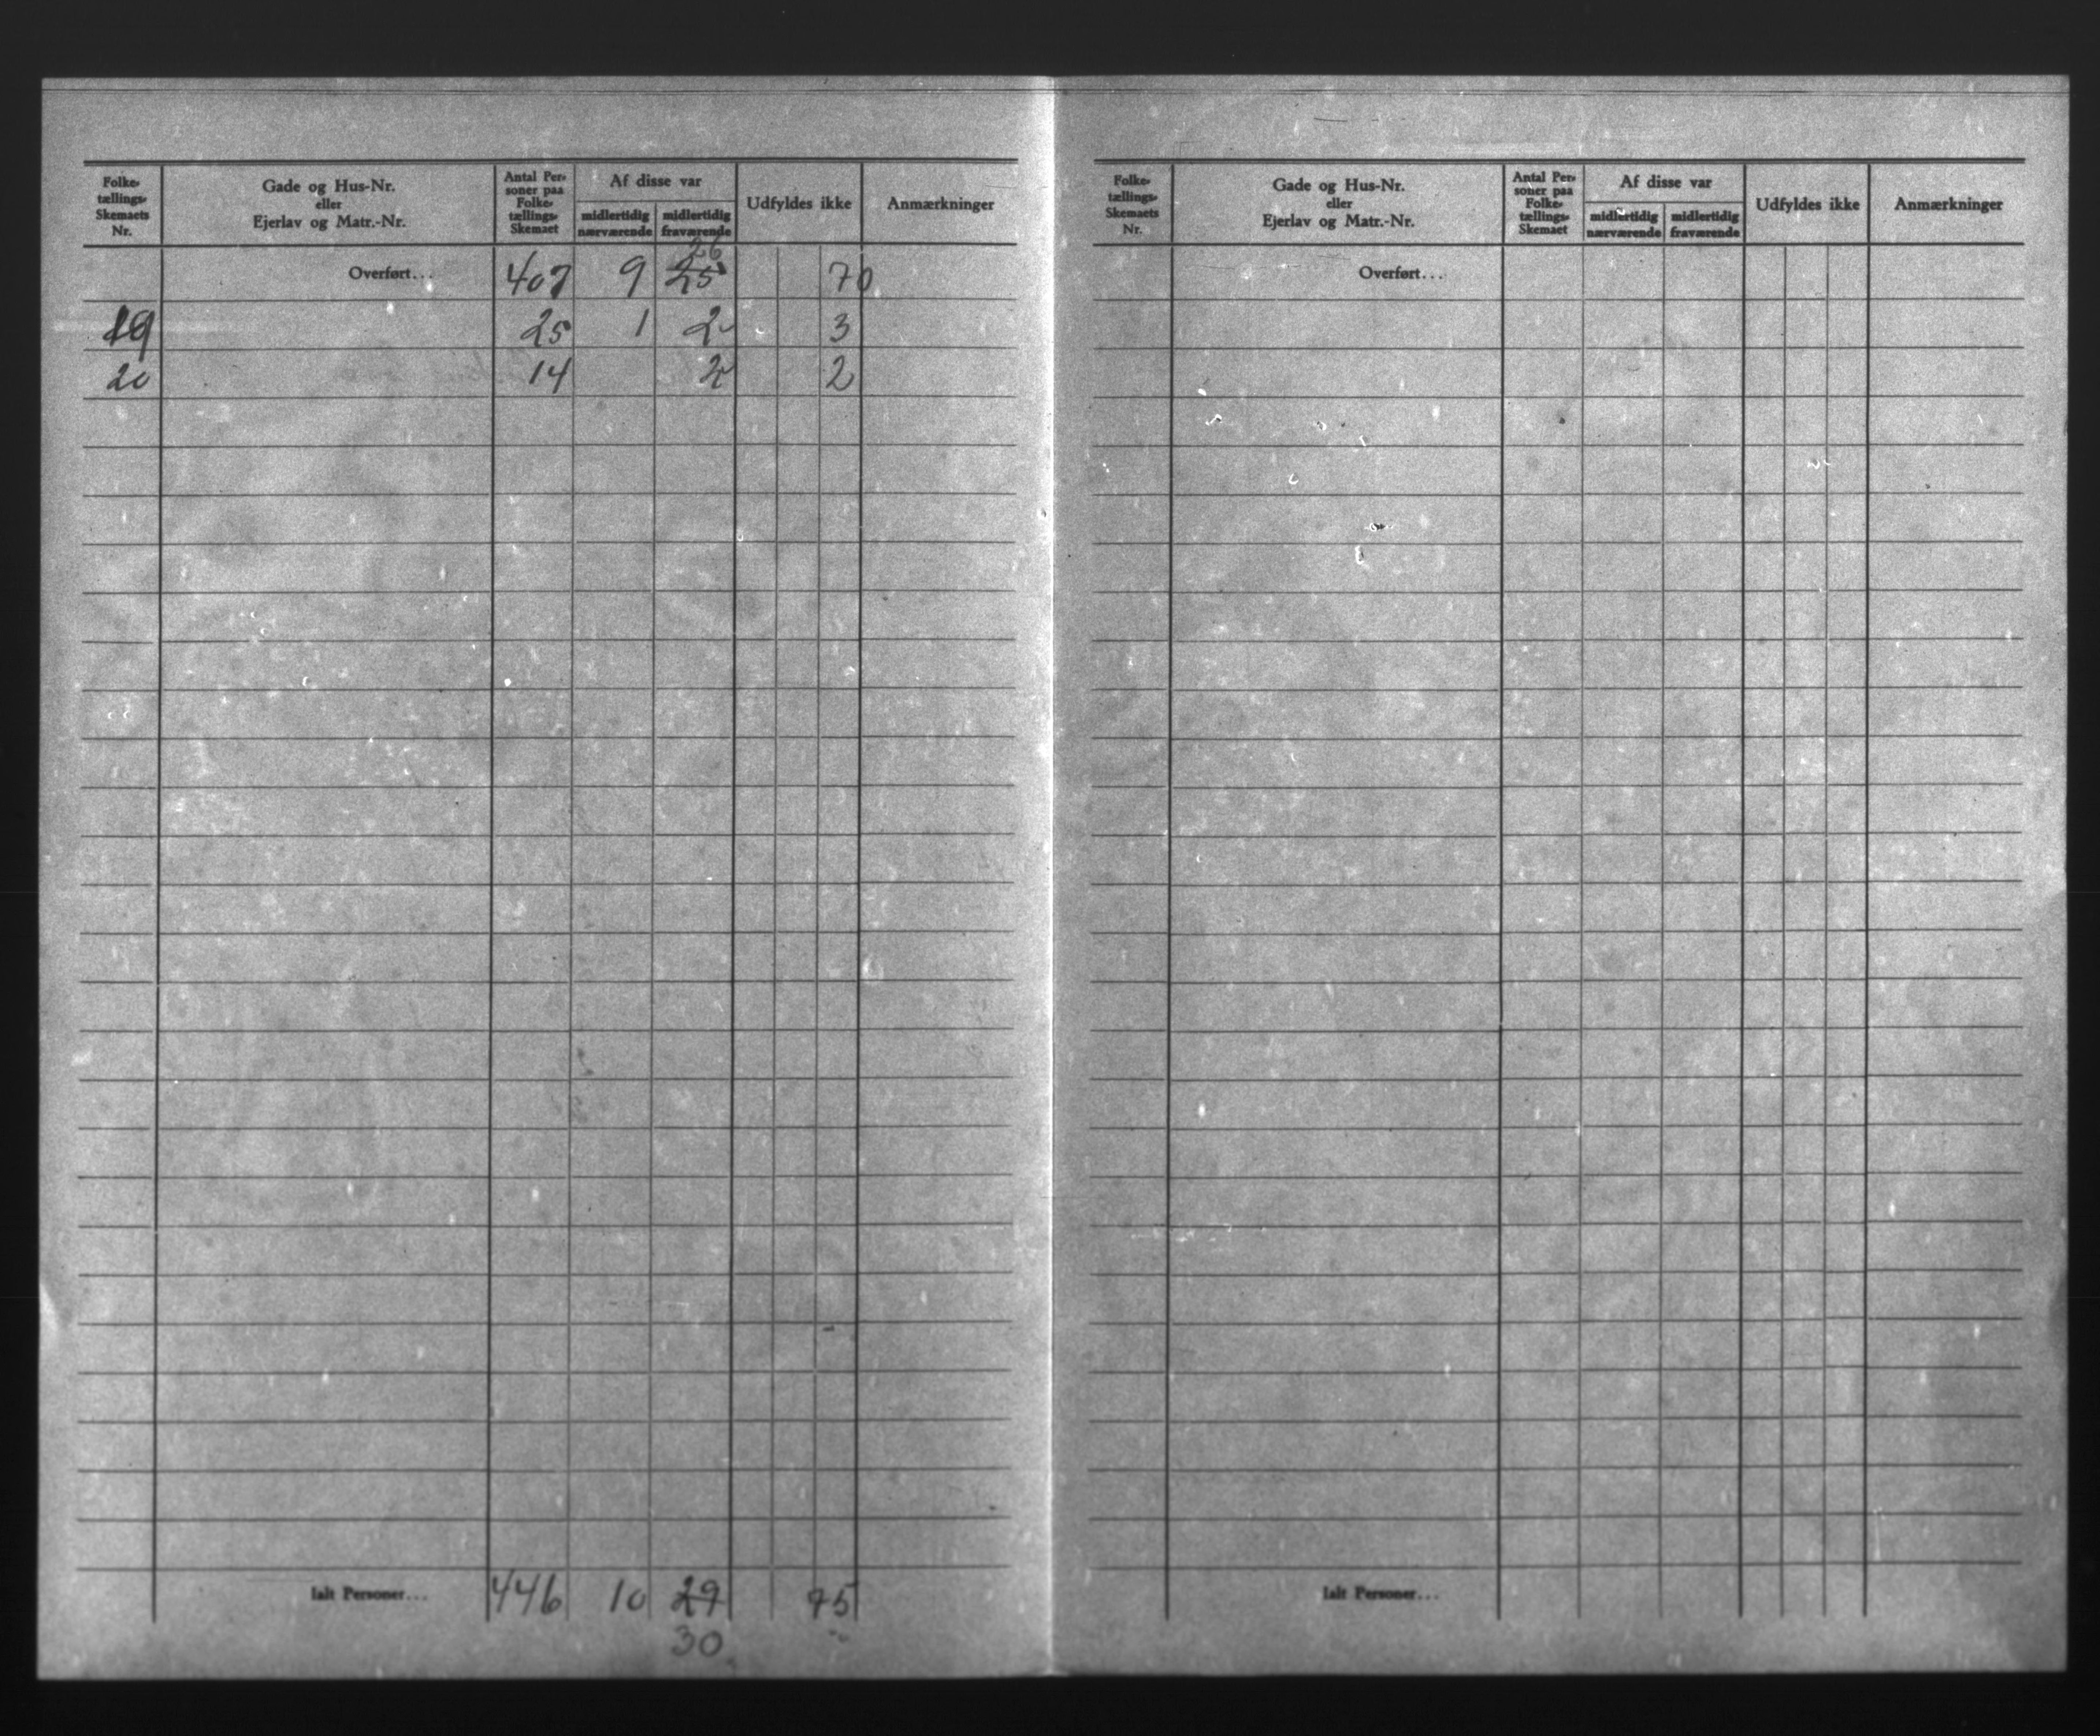 Folke-
tællings-
Skemaets
Nr.
Gade og Hus-Nr.
eller
Ejerlav og Matr.-Nr.
Antal Per-
soner paa
Folke-
tællings-
Skemaet
Af disse var
midlertidig
nærværende
midlertidig
fraværende
Udfyldes ikke
Anmærkninger
26
Overført... 407 9 25 70
19 25 1 2 3
20 14 2 2
Ialt Personer... 446 10 29 75
30
Folke-
tællings-
Skemaets
Nr.
Gade og Hus-Nr.
eller
Ejerlav og Matr.-Nr.
Antal Per-
soner paa
Folke-
tællings-
Skemaet
Af disse var
midlertidig
nærværende
midlertidig
fraværende
Udfyldes ikke
Anmærkninger
Overført...
Ialt Personer...